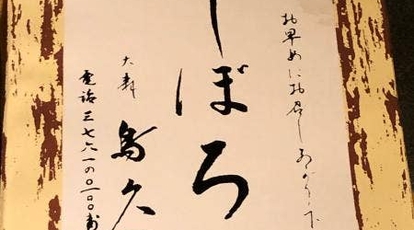 お早めにお召しあがり下
ぼろ
大森
鳥久
電話三七六一の〇一〇〇番